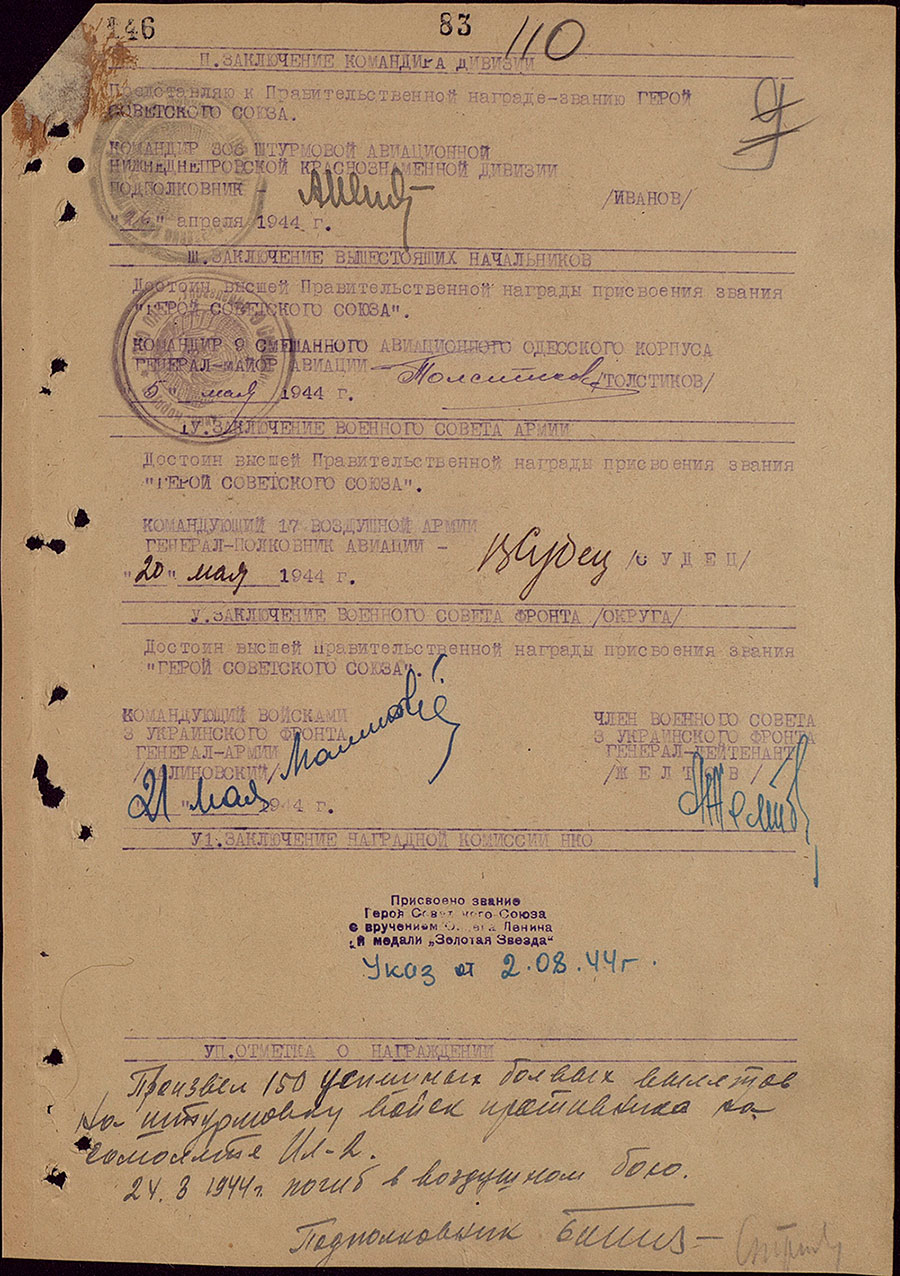 146
83
110
П.ЗАКЛЮЧЕНИЕ КОМАНДИРА ДИВИЗИИ
Представляю к Правительственной награде-званию ГЕРОЙ
СОВЕТСКОГО СОЮЗА.
КОМАНДИР 306 ШТУРМОВОЙ АВИАЦИОННОЙ
НИЖНЕДНЕПРОВСКОЙ КРАСНОЗНАМЕННОЙ ДИВИЗИИ
ПОДПОЛКОВНИК -
/ИВАНОВ/
апреля 1944 г.
Ш.ЗАКЛЮЧЕНИЕ ВЫШЕСТОЯЩИХ НАЧАЛЬНИКОВ
Достоин высшей Правительственной награды присвоения звания
"ГЕРОЙ СОВЕТСКОГО СОЮЗА".
КОМАНДИР 9 СМЕШАННОГО АВИАЦИОННОГО ОДЕССКОГО КОРПУСА
ГЕНЕРАЛ-МАЙОР АВИАЦИИ Толстиков /ТОЛСТИКОВ/
"5" мая 1944 г.
1У.ЗАКЛЮЧЕНИЕ ВОЕННОГО СОВЕТА АРМИИ
Достоин высшей Правительственной награды присвоения звания
"ГЕРОЙ СОВЕТСКОГО СОЮЗА".
КОМАНДУЮЩИЙ 17 ВОЗДУШНОЙ АРМИИ
ГЕНЕРАЛ-ПОЛКОВНИК АВИАЦИИ - ВСудец /С У Д Е Ц/
"20" мая 1944 г.
У.ЗАКЛЮЧЕНИЕ ВОЕННОГО СОВЕТА ФРОНТА /ОКРУГА/
Достоин высшей Правительственной награды присвоения звания
"ГЕРОЙ СОВЕТСКОГО СОЮЗА".
КОМАНДУЮЩИЙ ВОЙСКАМИ
3 УКРАИНСКОГО ФРОНТА
ГЕНЕРАЛ-АРМИИ
/МАЛИНОВСКИЙ/
21 " мая 1944 г.
ЧЛЕН ВОЕННОГО СОВЕТА
3 УКРАИНСКОГО ФРОНТА
ГЕНЕРАЛ-ЛЕЙТЕНАНТ
/Ж Е Л Т О В/
У1.ЗАКЛЮЧЕНИЕ НАГРАДНОЙ КОМИССИИ НКО
Присвоено звание
Героя Советского Союза
с вручением Ордена Ленина
и медали „Золотая Звезда"
Указ от 2.08.44г.
УП.ОТМЕТКА О НАГРАЖДЕНИИ
Произвел 150 успешных боевых вылетов
на штурмовку войск противника на
самолете Ил-2.
24.3 1944г. погиб в воздушном бою.
Подполковник